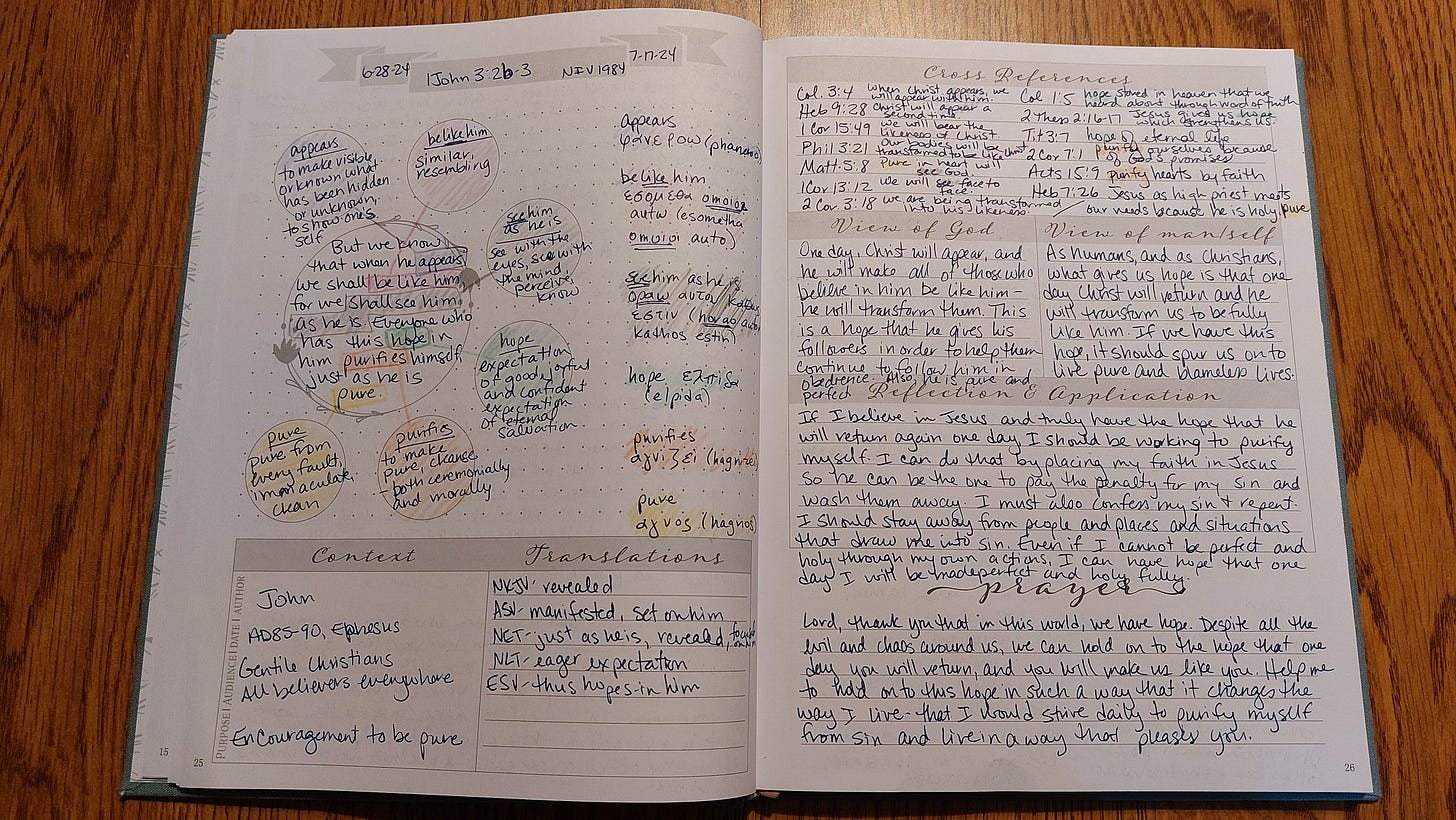 6-28-24
1John 3:2b-3 NIV 1984
7-17-24
appears
to make visible
or known what
has been hidden
or unknown,
to show one's
self
be like him
similar,
resembling
see him
as he is
see with the
eyes, see with
the mind
perceive,
know
But we know
that when he appears,
we shall be like him,
for we shall see him
as he is. Everyone who
has this hope in
him purifies himself,
just as he is
pure.
hope
expectation
of good, joyful
and confident
expectation
of eternal
salvation
pure
pure from
every fault,
immaculate,
clean
purifies
to make
pure, cleanse
- both ceremonially
and morally
appears
φανερow
be like him
εσομεθα ομοιοι
αυτω (esometha
omoioi auto)
see him as he is
οραω αυτον
εστιν (horao
kathos estin)
hope ελπιδα
(elpida)
purifies
αγνιζει
pure
αγνος (hagnos)
Context
PURPOSE | AUDIENCE | DATE | AUTHOR
John
AD85-90, Ephesus
Gentile Christians
All believers everywhere
Encouragement to be pure
Translations
NKJV- revealed
ASV- manifested, set on him
NET- just as he is, revealed,
NLT- eager expectation
ESV- thus hopes in him
15
25
Cross References
Col. 3:4 when Christ appears, we
will appear with him.
Heb 9:28 Christ will appear a
second time
1 Cor 15:49 we will bear the
likeness of Christ
Phil 3:21 Our bodies will be
transformed to be like Christ
Matt. 5:8 Pure in heart will
see God.
1Cor 13:12 We will see face to
face.
2 Cor. 3:18 we are being transformed
into his likeness.
Col 1:5 hope stored in heaven that we
heard about through word of truth
2 Thess 2:16-17 Jesus gives us hope
which strengthens us
Tit 3:7 hope of eternal life
2 Cor 7:1 purify ourselves because
of God's promises
Acts 15:9 purify hearts by faith
Heb 7:26 Jesus as high priest meets
our needs because he is holy, pure
View of God
One day, Christ will appear, and
he will make all of those who
believe in him be like him-
he will transform them. This
is a hope that he gives his
followers in order to help them
continue to follow him in
obedience. Also, he is pure and
perfect
View of man/self
As humans, and as Christians,
what gives us hope is that one
day Christ will return and he
will transform us to be fully
like him. If we have this
hope, it should spur us on to
live pure and blameless lives.
Reflection & Application
If I believe in Jesus and truly have the hope that he
will return again one day, I should be working to purify
myself. I can do that by placing my faith in Jesus
so he can be the one to pay the penalty for my sin and
wash them away. I must also confess my sin & repent.
I should stay away from people and places and situations
that draw me into sin. Even if I cannot be perfect and
holy through my own actions, I can have hope that one
day I will be made perfect and holy fully.
prayer
Lord, thank you that in this world, we have hope. Despite all the
evil and chaos around us, we can hold on to the hope that one
day you will return, and you will make us like you. Help me
to hold on to this hope in such a way that it changes the
way I live- that I would strive daily to purify myself
from sin and live in a way that pleases you.
26